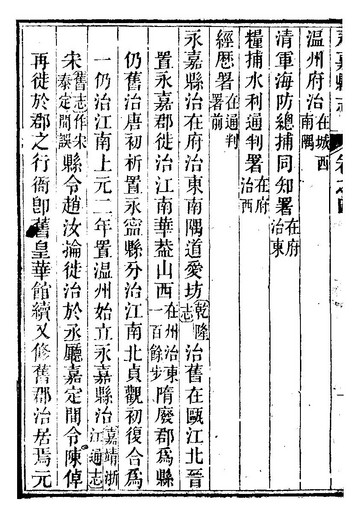 永嘉縣志 卷之四
溫州府治在城西南隅
清軍海防總捕同知署在府治東
糧捕水利通判署在府治西
經歷署在通判署前
永嘉縣治在府治東南隅道愛坊乾隆志治舊在甌江北晉
置永嘉郡徙治江南華葢山西在州治東一百餘步隋廢郡爲縣
仍舊治唐初析置永寧縣分治江南北貞觀初復合爲
一仍治江南上元二年置溫州始立永嘉縣治嘉靖浙江通志
宋舊志作宋泰定間誤縣令趙汝掄徙治於丞廳嘉定間令陳倬
再徙於郡之行衙卽舊皇華館續又修舊郡治居焉元